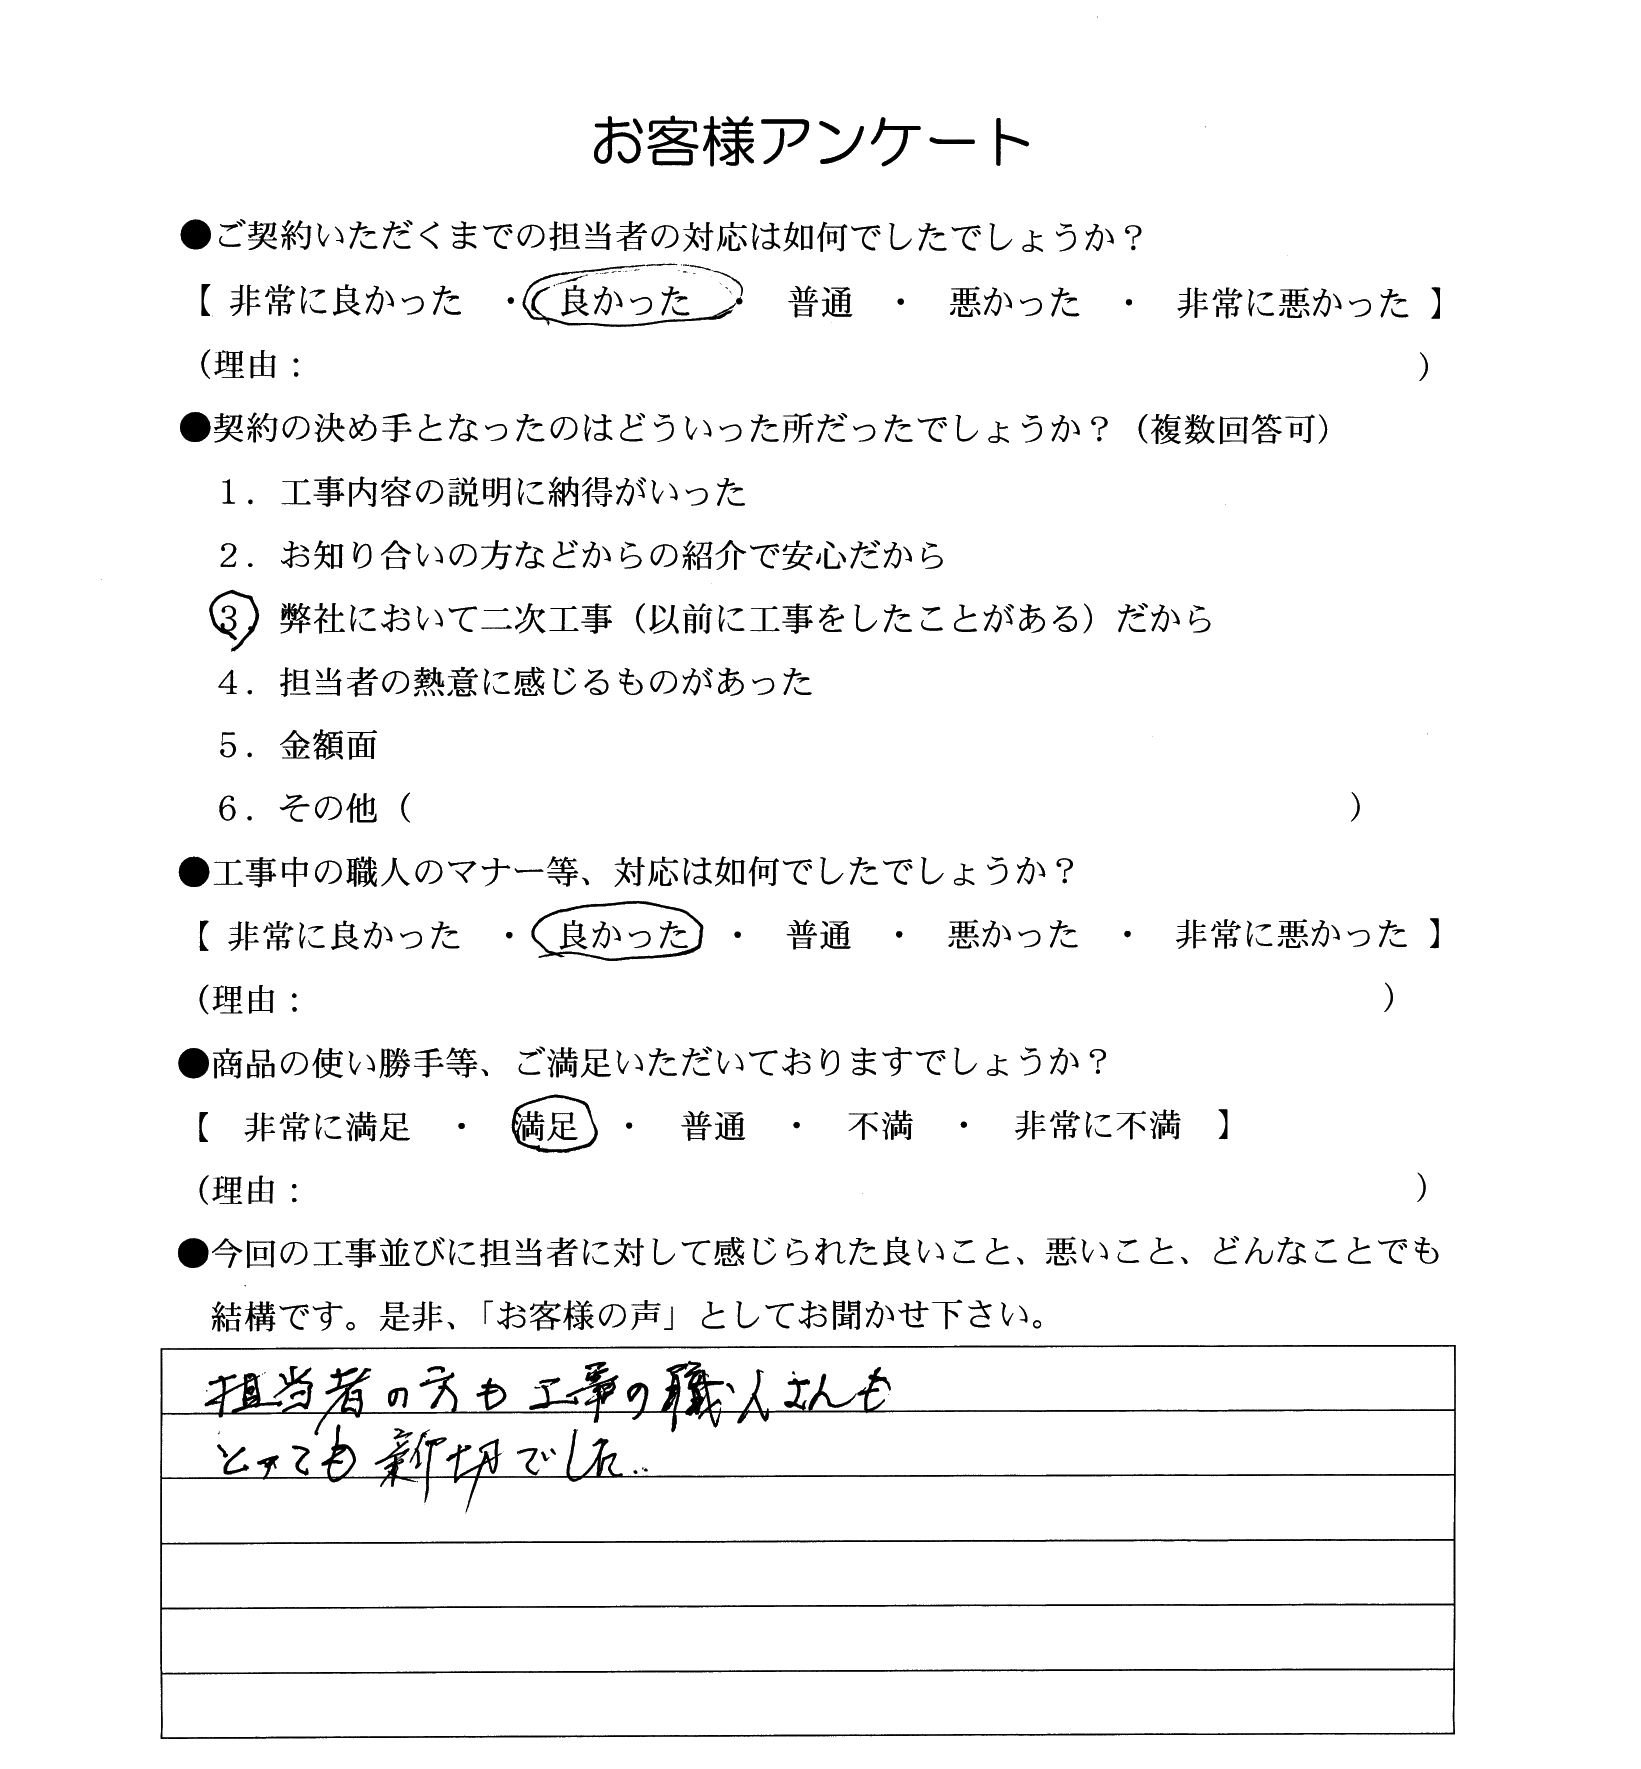 お客様アンケート
●ご契約いただくまでの担当者の対応は如何でしたでしょうか？
【 非常に良かった ・ 良かった ・ 普通 ・ 悪かった ・ 非常に悪かった 】
（理由： ）
●契約の決め手となったのはどういった所だったでしょうか？（複数回答可）
１．工事内容の説明に納得がいった
２．お知り合いの方などからの紹介で安心だから
３．弊社において二次工事（以前に工事をしたことがある）だから
４．担当者の熱意に感じるものがあった
５．金額面
６．その他（ ）
●工事中の職人のマナー等、対応は如何でしたでしょうか？
【 非常に良かった ・ 良かった ・ 普通 ・ 悪かった ・ 非常に悪かった 】
（理由： ）
●商品の使い勝手等、ご満足いただいておりますでしょうか？
【 非常に満足 ・ 満足 ・ 普通 ・ 不満 ・ 非常に不満 】
（理由： ）
●今回の工事並びに担当者に対して感じられた良いこと、悪いこと、どんなことでも
結構です。是非、「お客様の声」としてお聞かせ下さい。
担当者の方も工事の職人さんも
とっても親切でした..